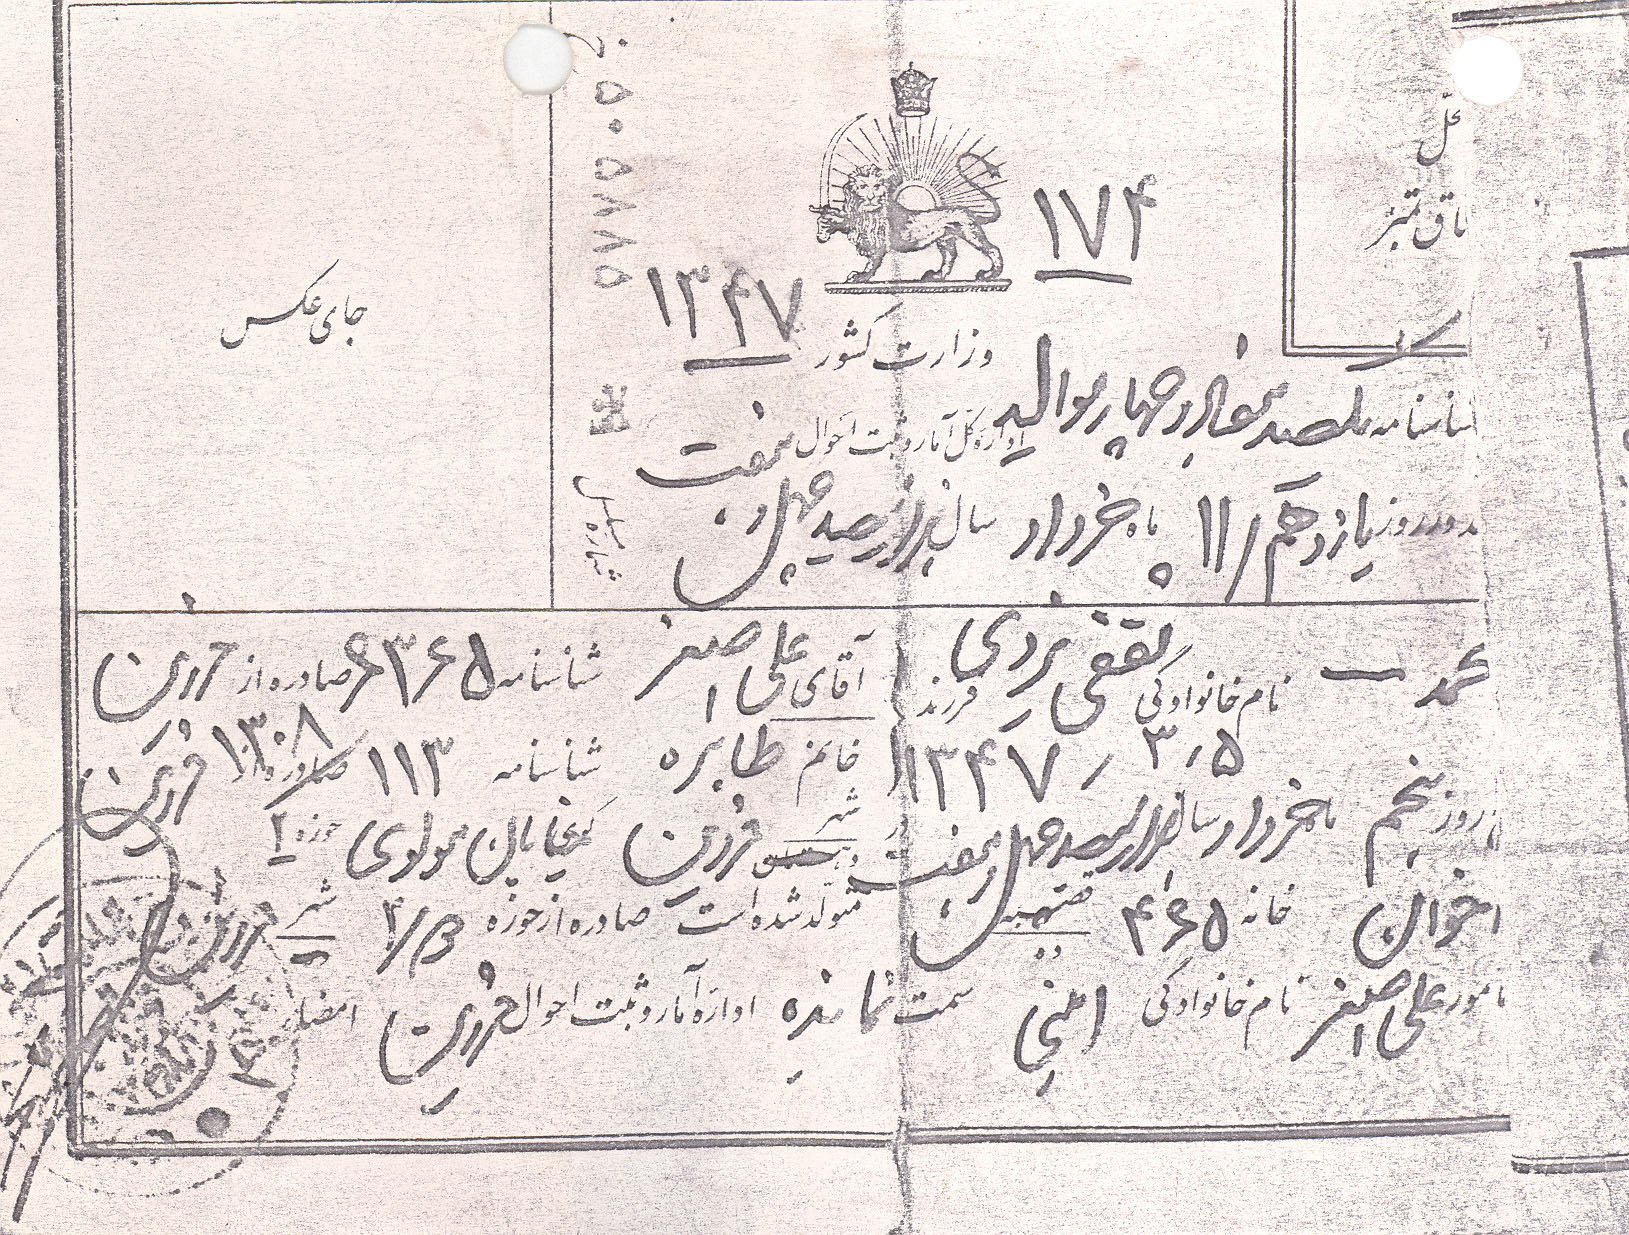 محل
الصاق تمبر
۱۷۴
۱۳۴۷
وزارت کشور
اداره کل آمار و ثبت احوال
جای عکس
شماره مسلسل
شناسنامه یکصد هفتاد و چهار موالید
هفت
روز یازدهم / ۱۱ ماه خرداد سال هزار سیصد چهل و
محمد نام خانوادگی ثقفی یزدی فرزند آقای علی اصغر شناسنامه ۶۳۶۵ صادره از قزوین
۱۳۴۷ / ۳ / ۵ خانم طاهره شناسنامه ۱۱۳ صادره از ۱۳۰۸ قزوین
روز پنجم ماه خرداد سال هزار سیصد چهل و هفت در شهر قزوین کوی خیابان مولوی حوزه ۲
اخوان خانه ۴۶۵ متولد شده است صادره از حوزه ۲/ شهر قزوین
مامور علی اصغر نام خانوادگی امینی سمت نماینده اداره آمار و ثبت احوال قزوین امضاء